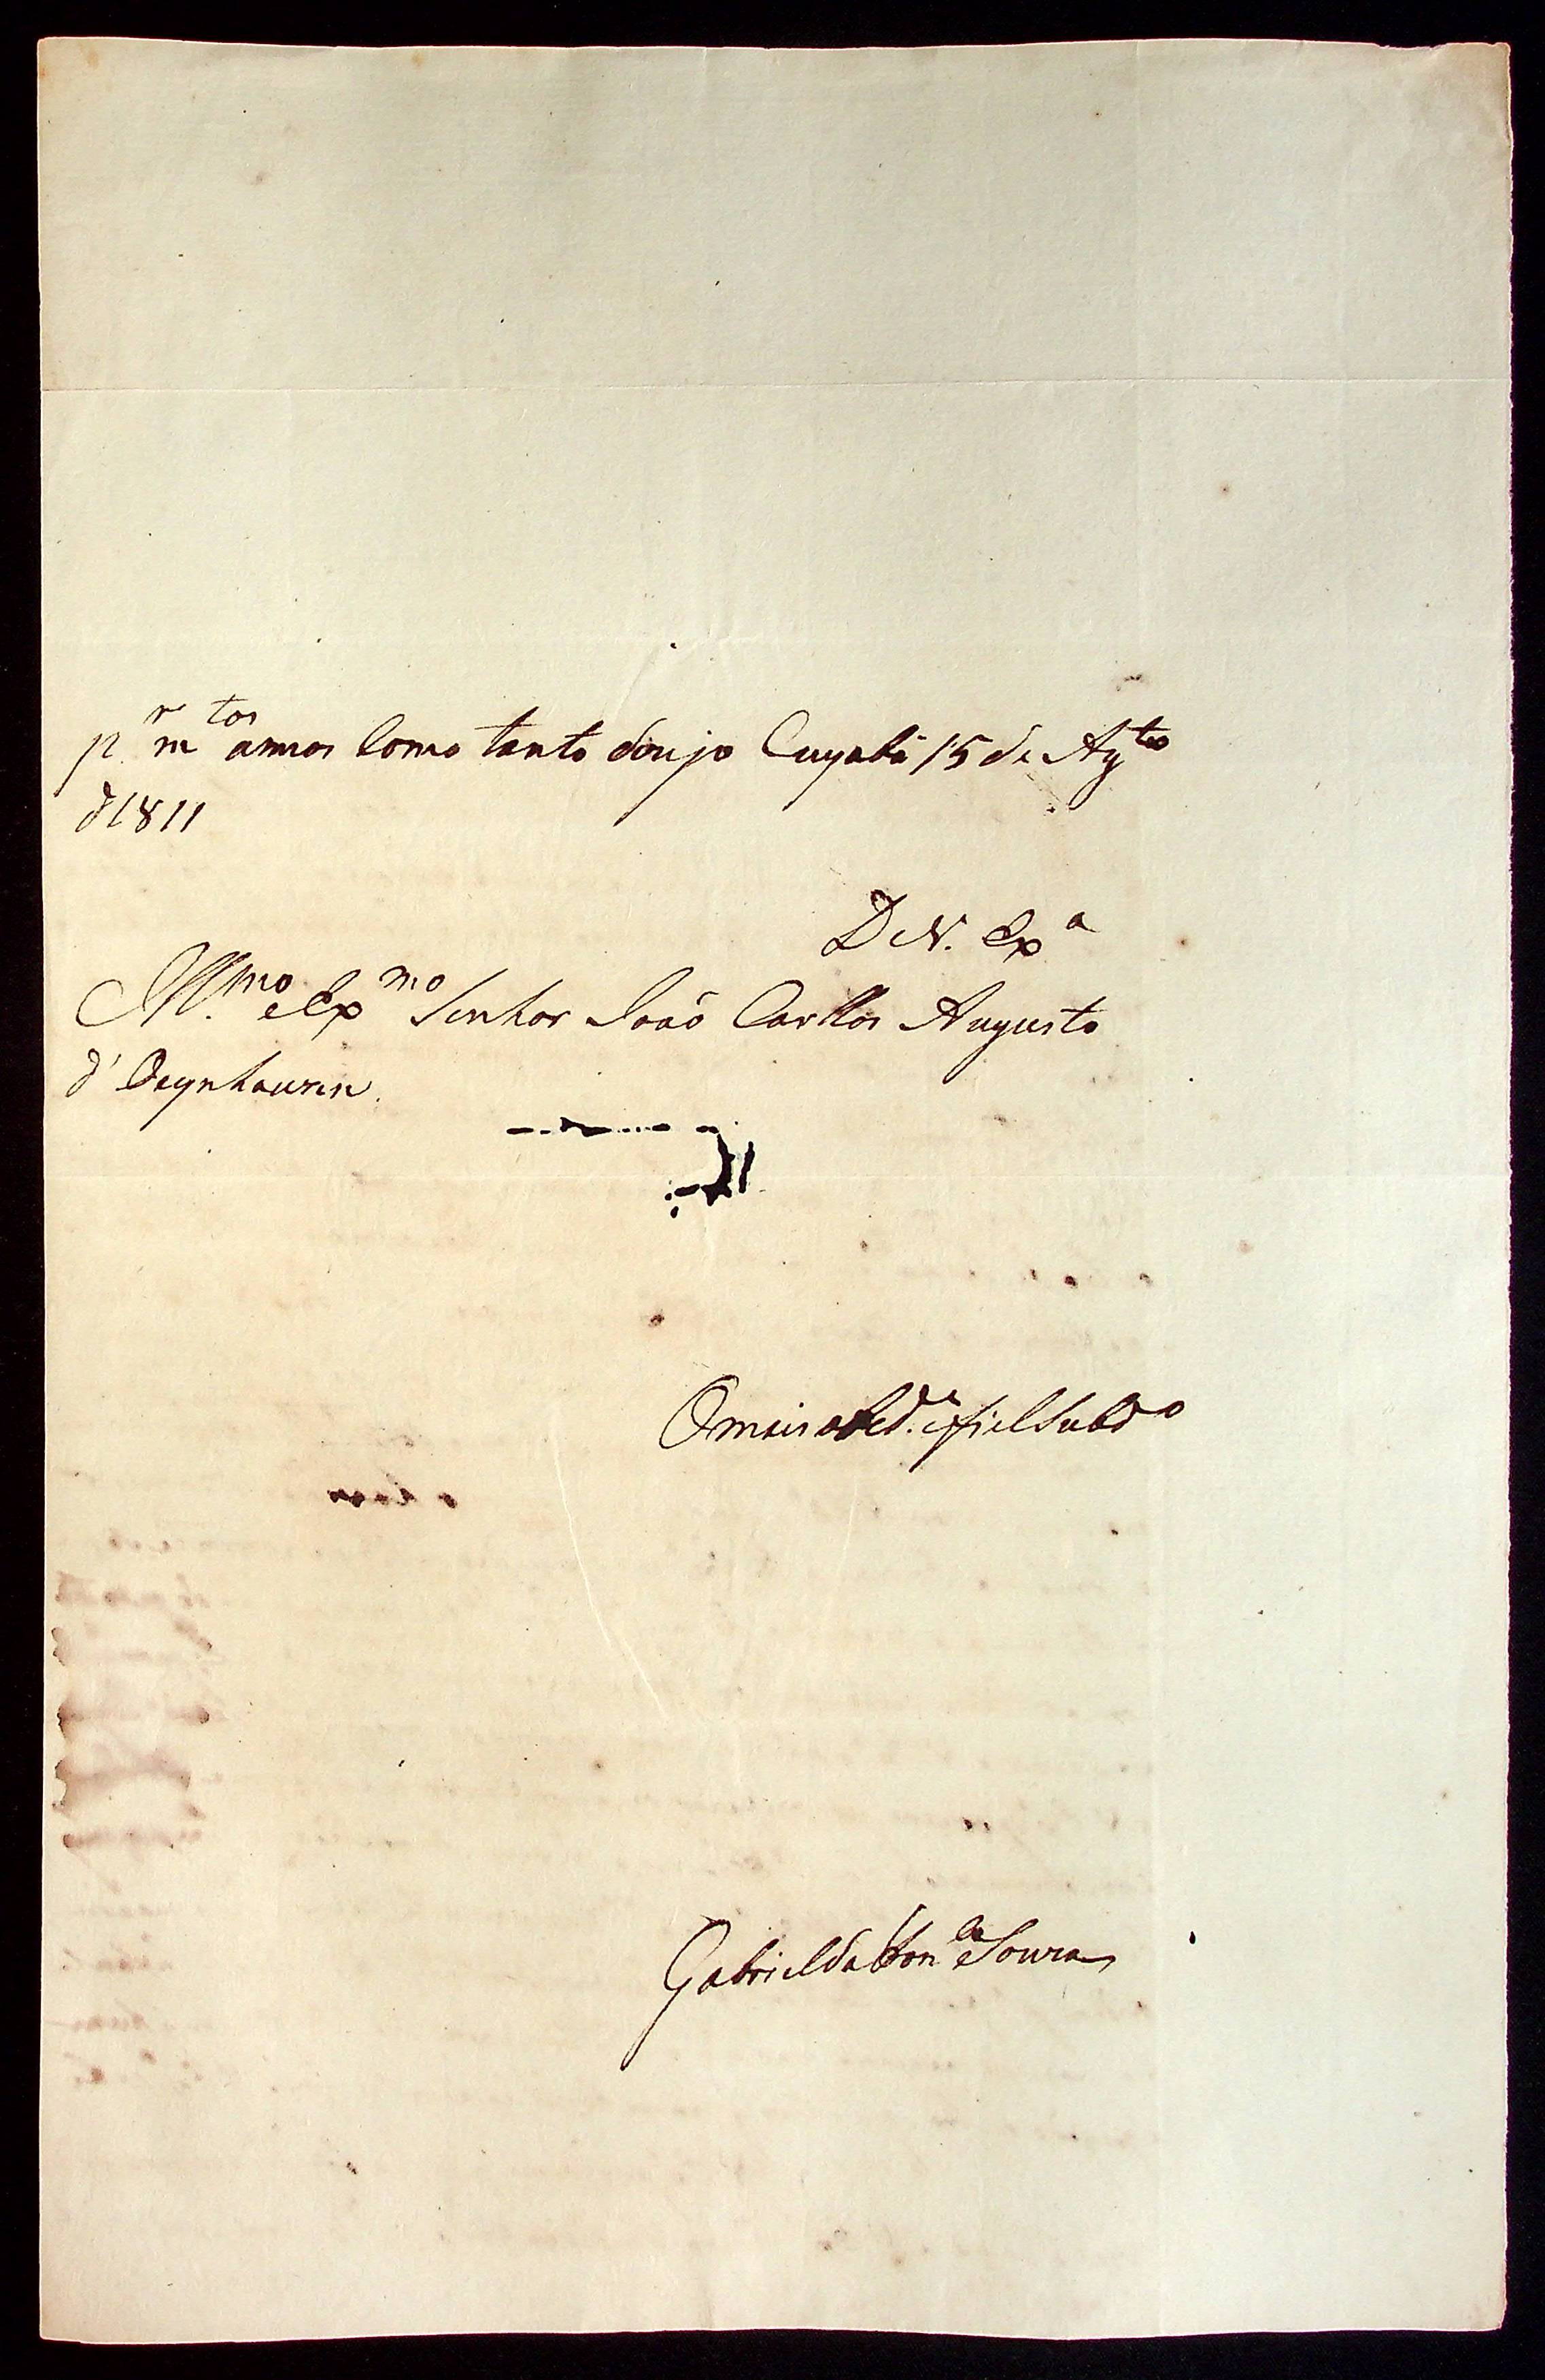 p.r mtos annos como tanto dezejo Cuyabá 15 de Agto
d 1811
De V. Exa
Illmo e Exmo Senhor João Carllos Augusto
d' Oeynhausen.
O mais obed.e e fiel subdo
Gabriel da Fonca e Souza